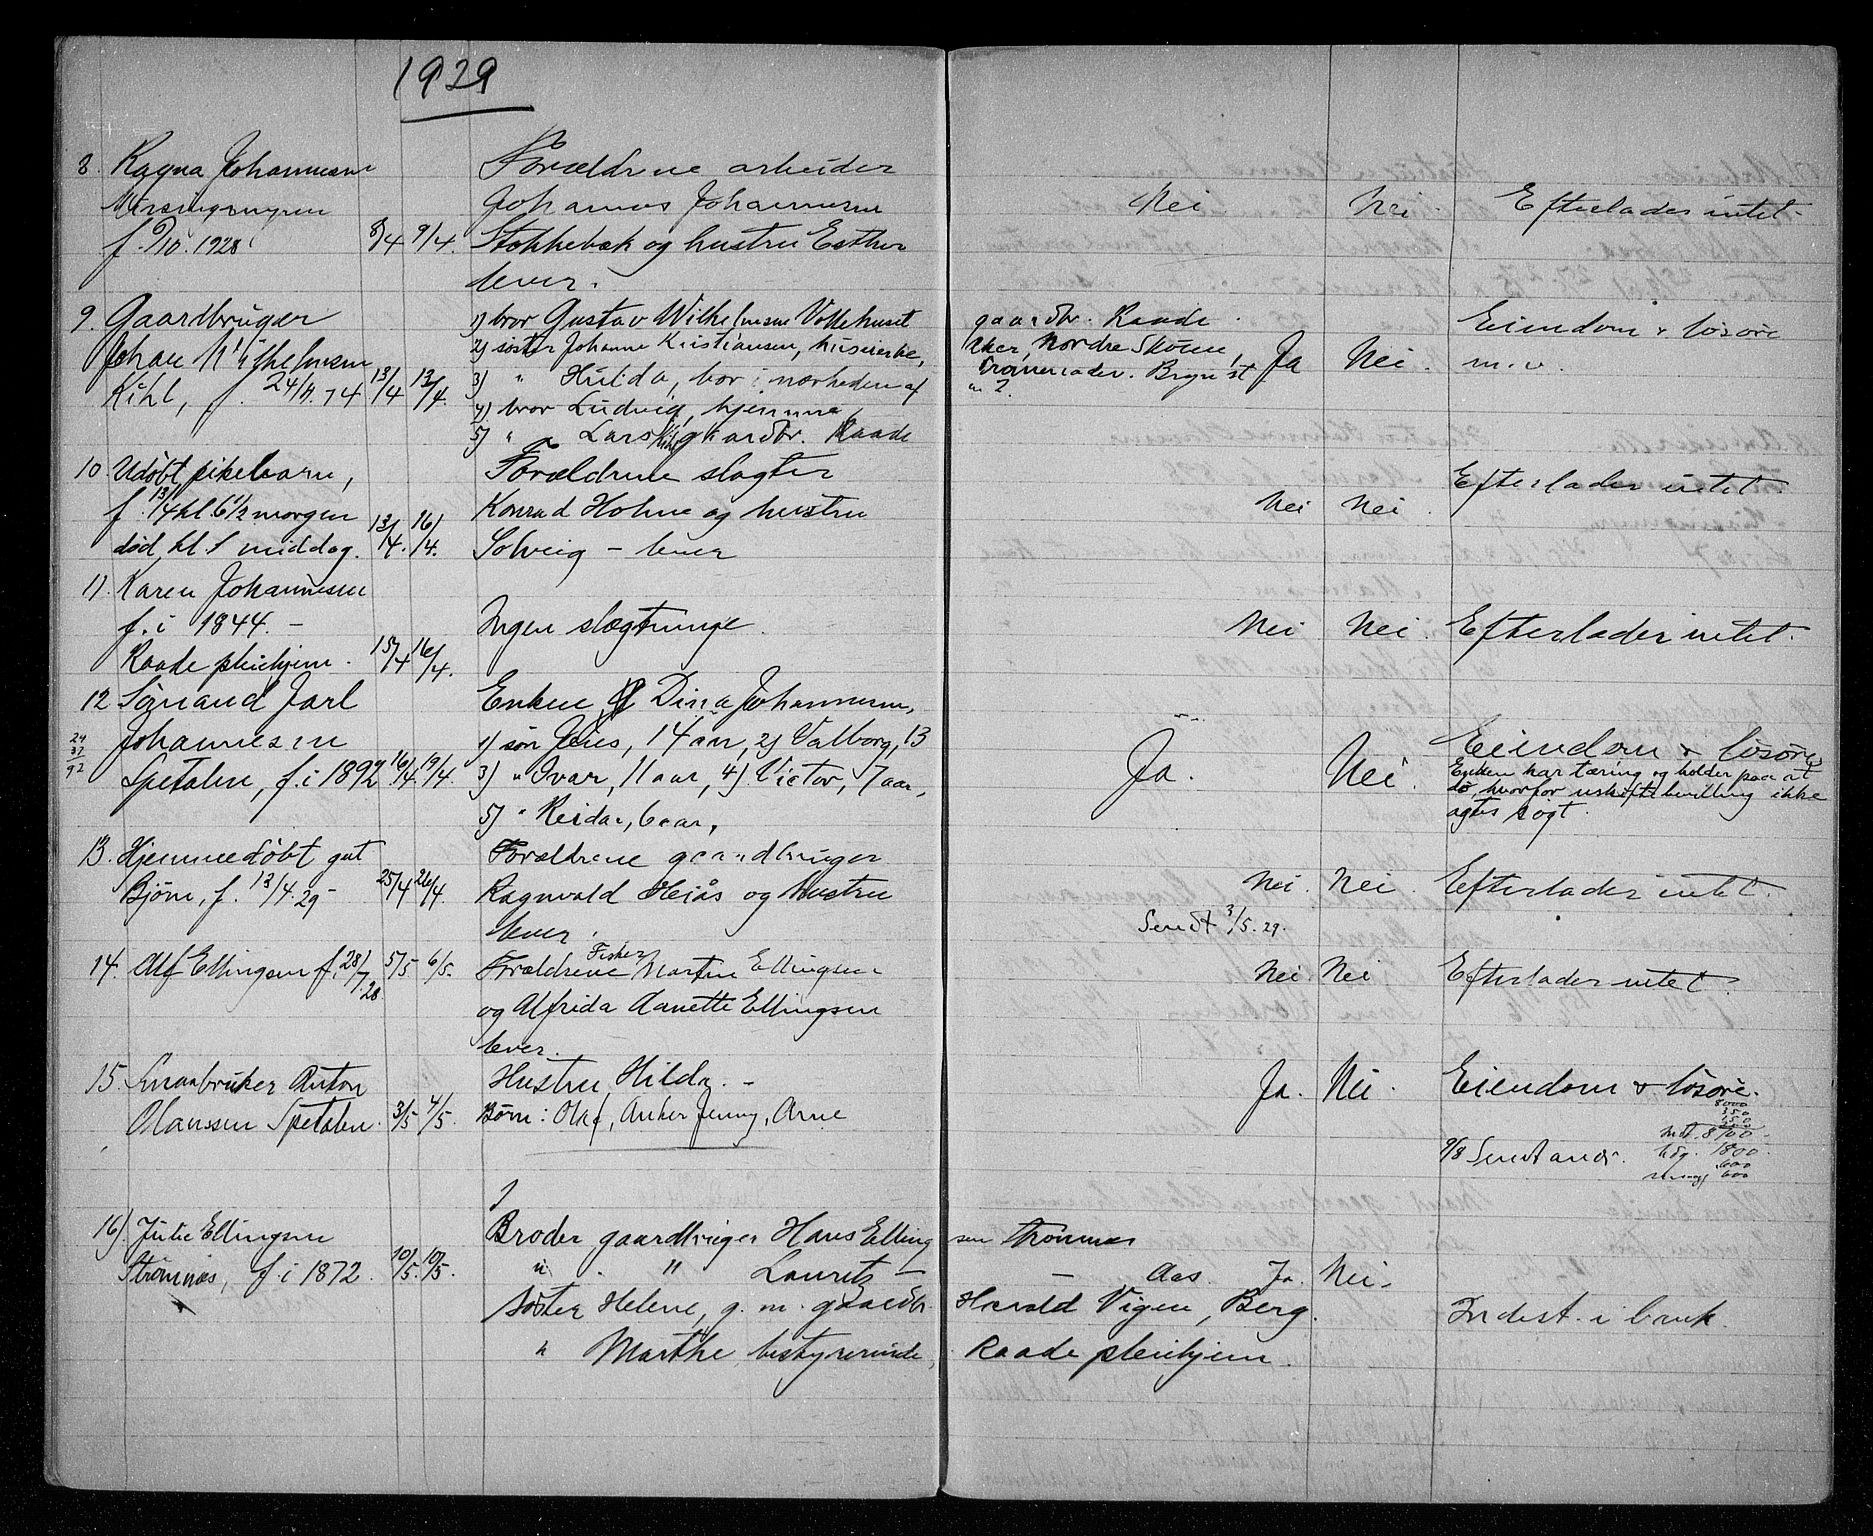 1929
8. Ragna Johannesen
f. 9/10. 1928. 8/4 9/4.
Forældrene arbeider
Johannes Johannesen
Stokkebæk og hustru Esther
lever.
Nei. Nei. Efterlader intet.
9. Gaardbruger
Johan Wilhelmsen
Kihl, f. 24/11. 74 13/4 13/4.
1) bror Gustav Wilhelmsen Vollehuset gaardbr. Raade.
2) søster Johanne Kristiansen, huseierske, Nordre Skøien,
3) " Hulda, bor i nærheden af
4) bror Ludvig, hjemme,
5) " Lars Kihl gaardbr. Raade
Ja Nei. Eiendom & løsøre
m.v.
10. Udøbt pikebarn,
f. 13/4 kl 6 1/2 morgen
død kl. 1 middag. 13/4. 16/4.
Forældrene slagter
Konrad Holme og hustru
Solveig – lever
Nei Nei. Efterlader intet.
11. Karen Johannesen
f. i 1844. –
Raade pleiehjem. 15/4 16/4.
Ingen slægtninge.
Nei Nei. Efterlader intet.
12 Sømand Jarl
Johannesen
Spetalen, f. i 1892. 16/4 19/4.
24
32
92
Enken Dina Johannesen,
1) søn Jens, 14 aar, 2) Valborg, 13
3) " Ivar, 11 aar, 4) Victor, 7 aar,
5) " Reidar, 6 aar,
Ja. Nei. Eiendom & løsøre
Enken har tæring og holder paa at
dø, hvorfor uskiftebevilling ikke
agtes søgt.
13. Hjemmedøbt gut
Bjørn, f. 13/4. 29 – 25/4 26/4.
Forældrene gaardbruger
Ragnvald Heiås og hustru
lever.
Nei. Nei. Efterlader intet.
Sendt 3/5. 29.
14. Alf Ellingsen f. 28/7. 28. 5/5 6/5.
Forældrene Fisker Martin Ellingsen
og Alfrida Aanette Ellingsen
lever.
Nei. Nei Efterlader intet.
15. Smaabruker Anton
Olaussen Spetalen. 3/5 4/5.
Hustru Hilda. –
Børn: Olaf, Anker Jenny, Arne
Ja. Nei. Eiendom & løsøre.
8000
350
350
8700
1800.
600
600
9/8 Sendt
16). Julie Ellingsen
Strømnæs, f. i 1872. 10/5. 10/5.
Broder gaardbruger Hans Ellingsen Strømnæs
" " Lauritz – – Aas. Ja. Nei.
Søster Helene, g. m. gaardbr. Harald Vigen, Berg.
" Marthe, bestyrerinde, Raade pleiehjem.
Indest. i bank.